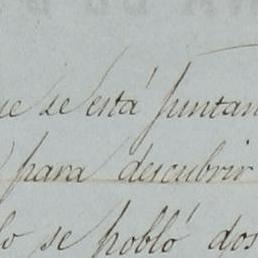 ue se está juntan
para descubrir
lo se pobló dos